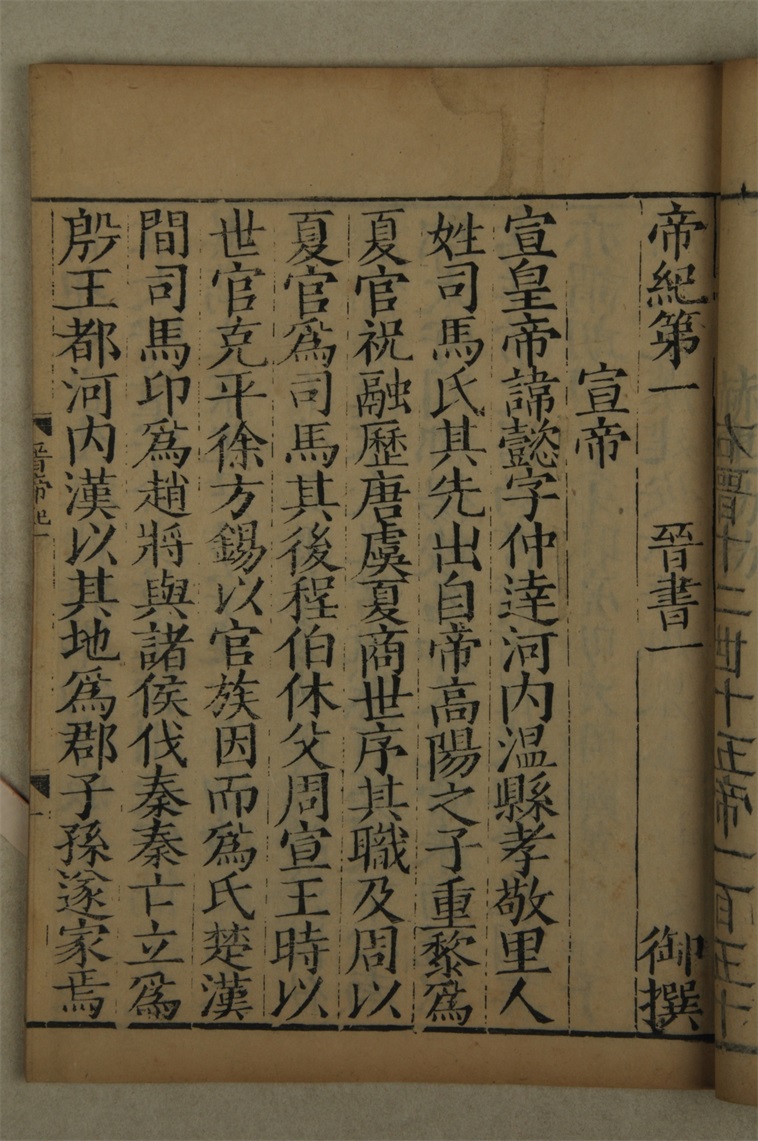 帝紀第一 晉書一 御撰
宣帝
宣皇帝諱懿字仲逹河内温縣孝敬里人
姓司馬氏其先出自帝高陽之子重黎爲
夏官祝融歷唐虞夏商世序其職及周以
夏官爲司馬其後程伯休父周宣王時以
世官克平徐方錫以官族因而爲氏楚漢
間司馬卬爲趙將與諸侯伐秦秦亡立爲
殷王都河内漢以其地爲郡子孫遂家焉
晉帝紀一
一